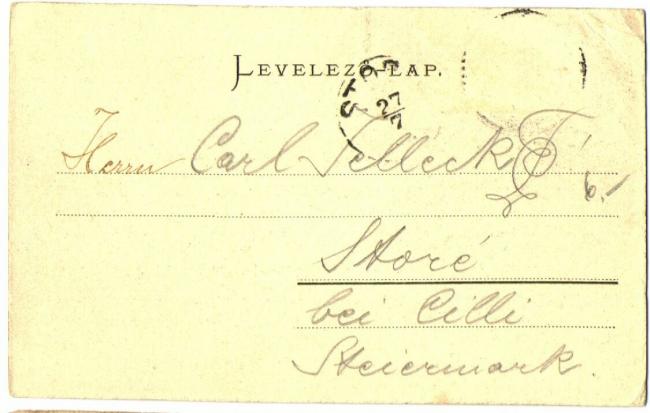 LEVELEZŐ-LAP.
STO
27
7
Herrn Carl Jelleck
6.
Storé
bei Cilli
Steiermark.